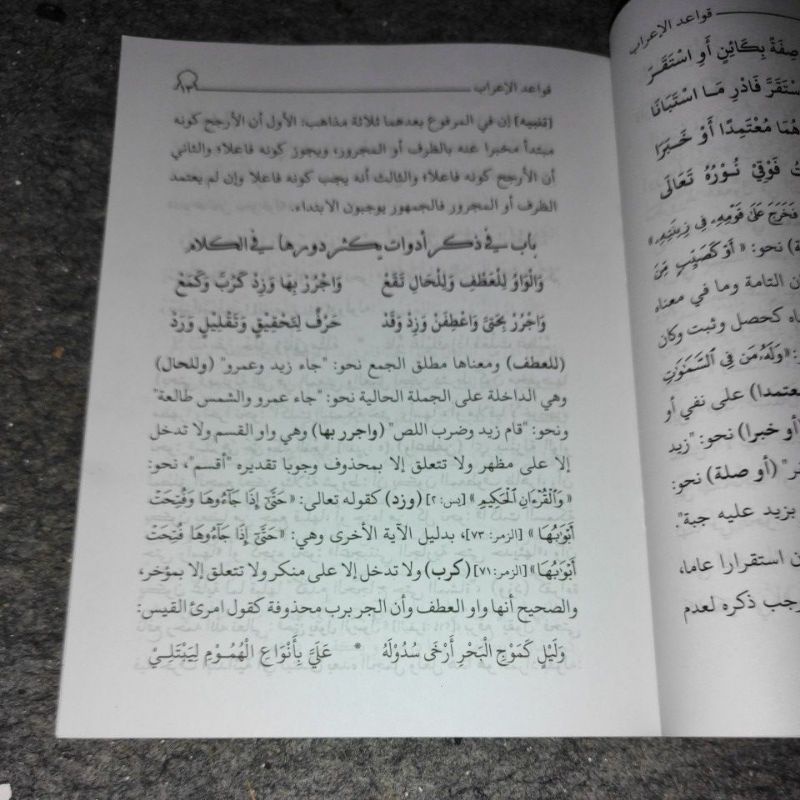 قواعد الإعراب
صِفَةً بِكَائِنٍ أَوِ اسْتَقَرَّ
اسْتَقَرَّ فَادْرِ مَا اسْتَبَانَا
مُعْتَمِدًا أَوْ خَبَرَا
فَوْقِيْ نُوْرُهُ تَعَالَى
فَخَرَجَ عَلَىٰ قَوْمِهِۦ فِي زِينَتِهِۦ﴾
نحو: ﴿أَوْ كَصَيِّبٍ مِّنَ
التامة وما في معناه
كحصل وثبت وكان
﴿وَلَهُۥ مَن فِي ٱلسَّمَٰوَٰتِ
على نفي أو
(أو خبرا) نحو: "زيد
(أو صلة) نحو:
يزيد عليه جبة".
استقرارا عاما،
ذكره لعدم
قواعد الإعراب ١٣
[تنبيه] إن في المرفوع بعدهما ثلاثة مذاهب: الأول أن الأرجح كونه
مبتدأ مخبرا عنه بالظرف أو المجرور، ويجوز كونه فاعلا؛ والثاني
أن الأرجح كونه فاعلا؛ والثالث أنه يجب كونه فاعلا وإن لم يعتمد
الظرف أو المجرور فالجمهور يوجبون الابتداء.
باب في ذكر أدوات يكثر دورها في الكلام
وَالْوَاوُ لِلْعَطْفِ وَلِلْحَالِ تَقَعْ وَاجْرُرْ بِهَا وَزِدْ كَرُبَّ وَكَمَعْ
وَاجْرُرْ بِحَتَّى وَاعْطِفَنْ وَزِدْ وَقَدْ حَرْفٌ لِتَحْقِيقٍ وَتَقْلِيلٍ وَرَدْ
(للعطف) ومعناها مطلق الجمع نحو: "جاء زيد وعمرو" (وللحال)
وهي الداخلة على الجملة الحالية نحو: "جاء عمرو والشمس طالعة"
ونحو: "قام زيد وضرب اللص" (واجرر بها) وهي واو القسم ولا تدخل
إلا على مظهر ولا تتعلق إلا بمحذوف وجوبا تقديره "أقسم"، نحو:
﴿وَٱلْقُرْءَانِ ٱلْحَكِيمِ﴾ [يس: ٢] (وزد) كقوله تعالى: ﴿حَتَّىٰٓ إِذَا جَآءُوهَا وَفُتِحَتْ
أَبْوَٰبُهَا﴾ [الزمر: ٧٣]، بدليل الآية الأخرى وهي: ﴿حَتَّىٰٓ إِذَا جَآءُوهَا فُتِحَتْ
أَبْوَٰبُهَا﴾ [الزمر: ٧١] (كرب) ولا تدخل إلا على منكر ولا تتعلق إلا بمؤخر،
والصحيح أنها واو العطف وأن الجر برب محذوفة كقول امرئ القيس:
وَلَيْلٍ كَمَوْجِ الْبَحْرِ أَرْخَى سُدُوْلَهُ * عَلَيَّ بِأَنْوَاعِ الْهُمُوْمِ لِيَبْتَلِيْ